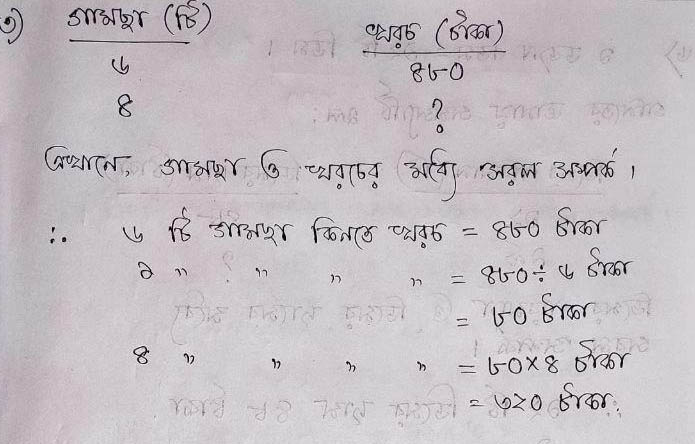 ৩) গামছা (টি) খরচ (টাকা)
৬ ৪৮০
৪ ?
এখানে, গামছা ও খরচের মধ্যে সরল সম্পর্ক।
∴ ৬ টি গামছা কিনতে খরচ = ৪৮০ টাকা
১ " " " " = ৪৮০ ÷ ৬ টাকা
= ৮০ টাকা
৪ " " " " = ৮০×৪ টাকা
= ৩২০ টাকা